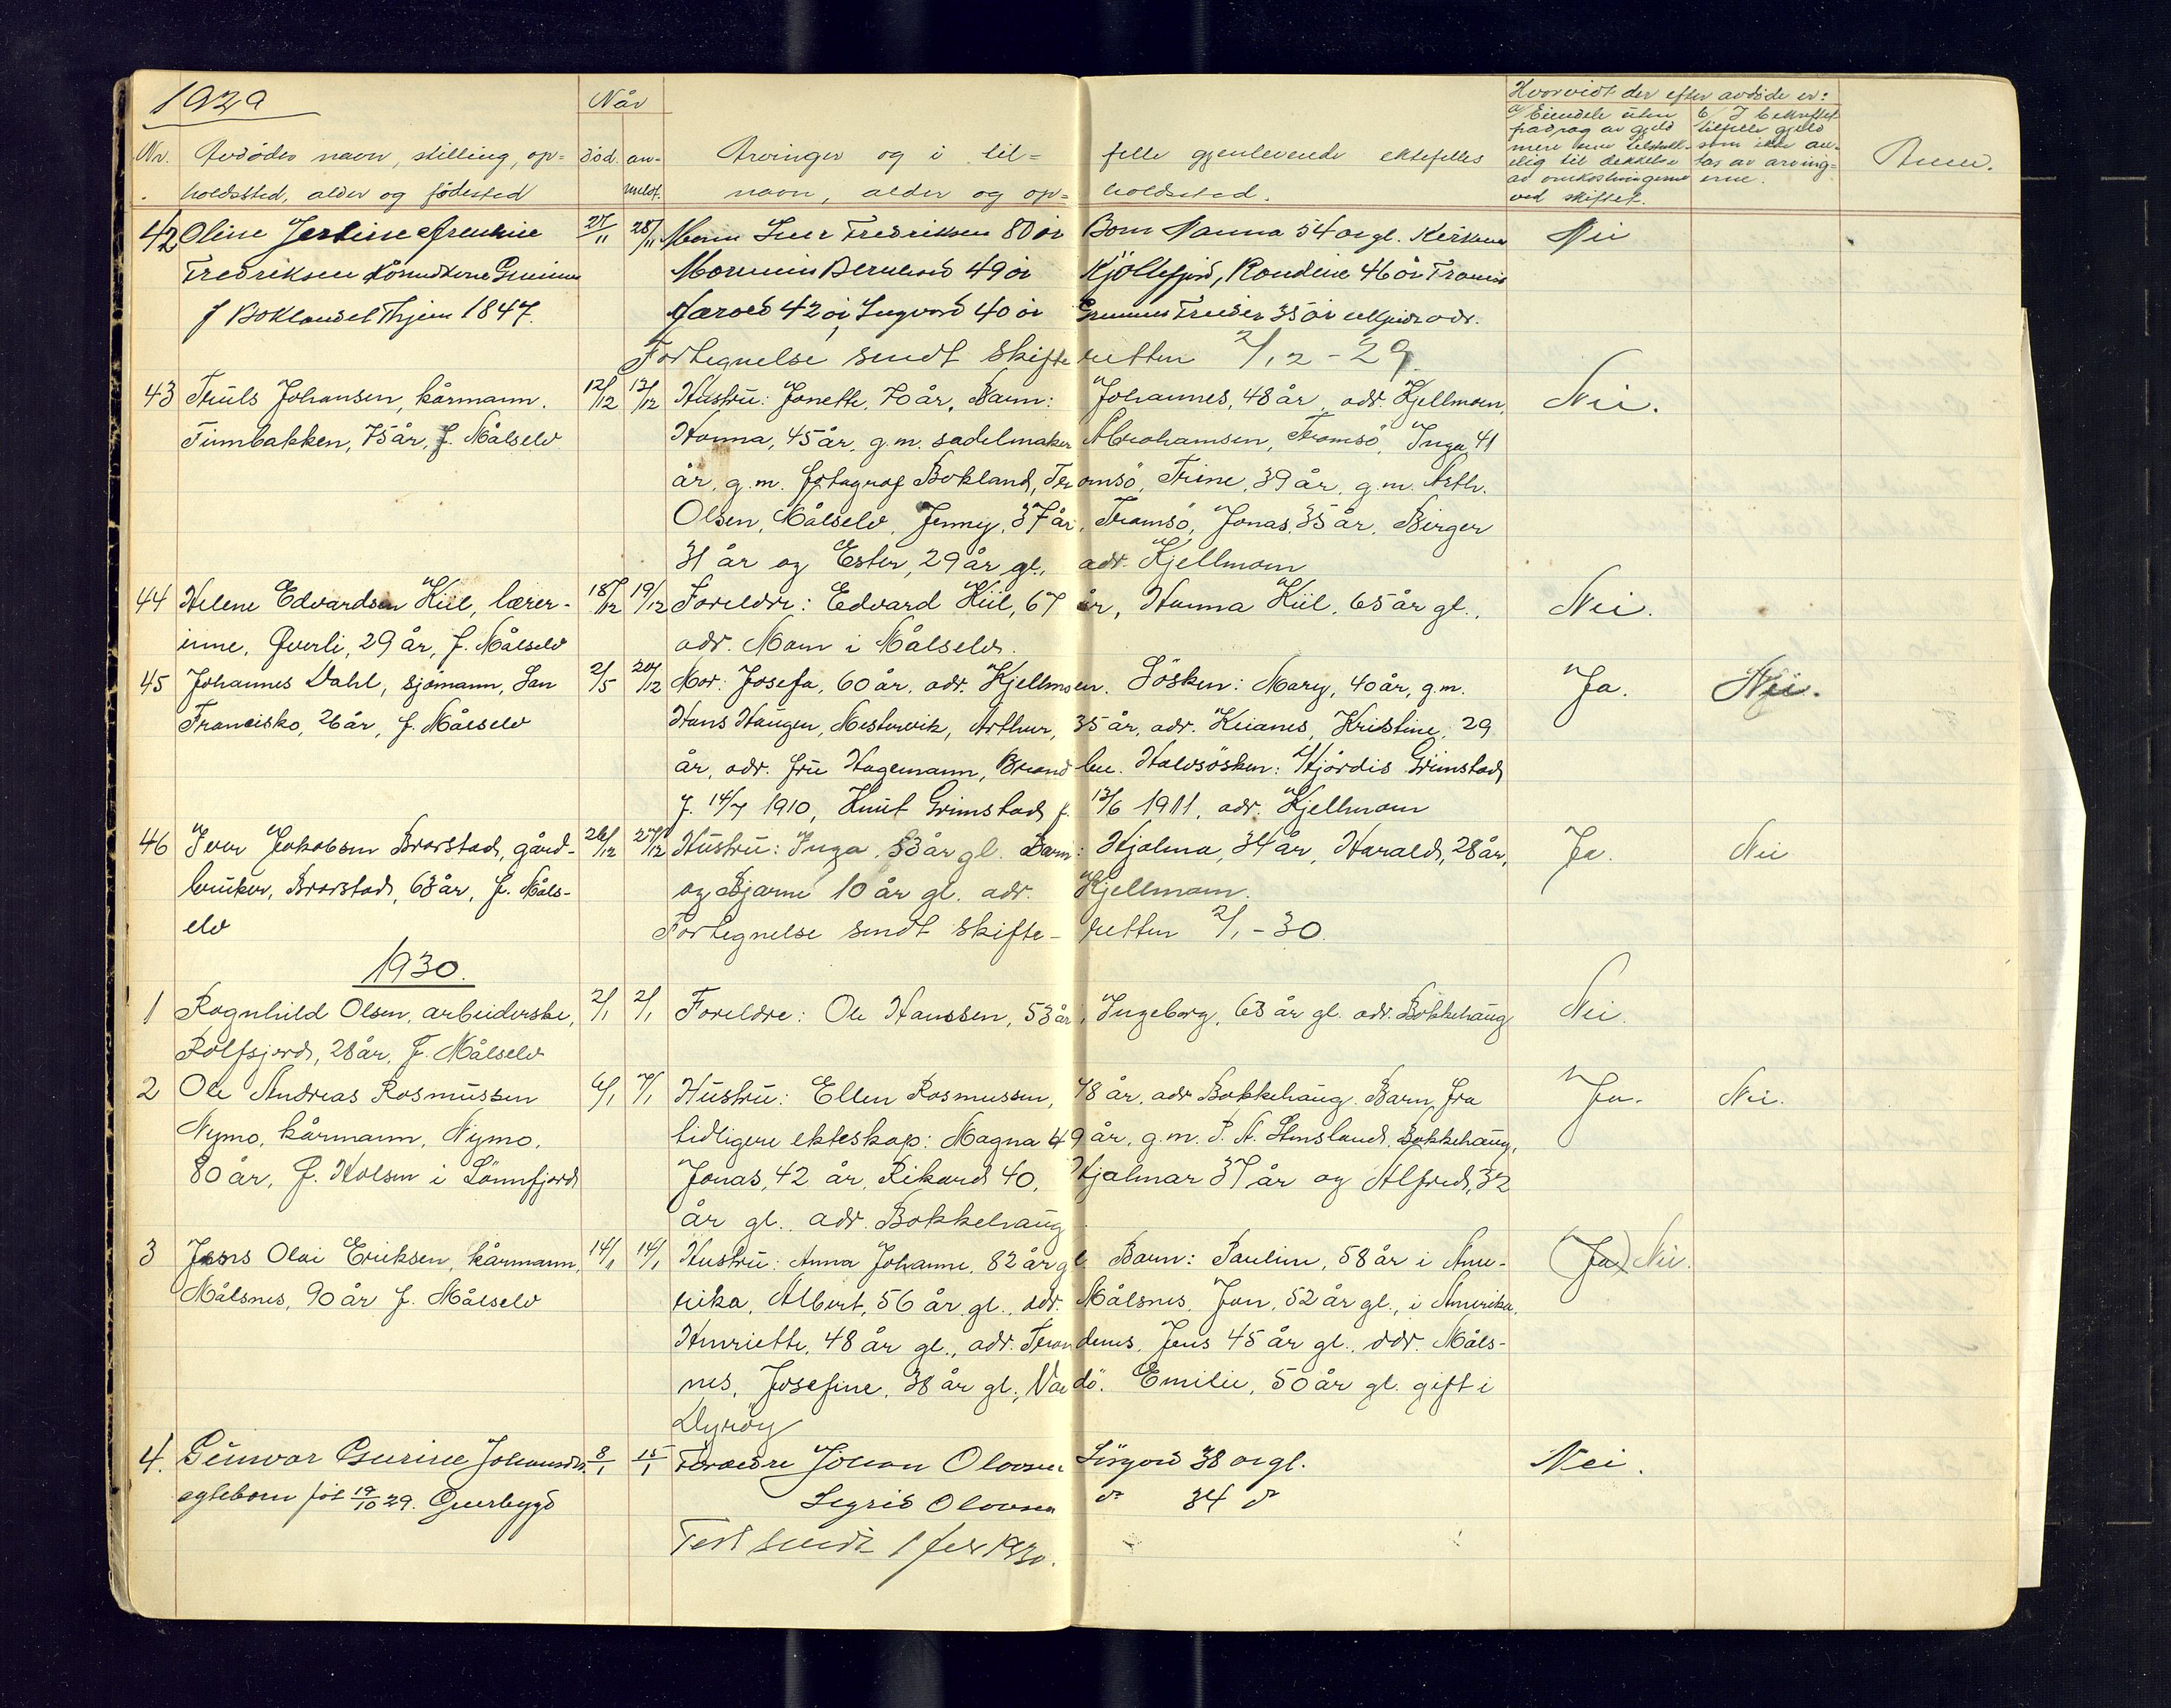 1929
Når
Hvorvidt der efter avdöde er:
a/ Eiendele uten b/ I bekreftet
fradrag av gjeld tilfelle gjeld
mere enn tilstrekke- som ikke an-
lig til dekkelse tas av arving-
av omkostningerne erne.
ved skiftet.
Nr. Avdödes navn, stilling, op- död. an- Arvinger og i til- felle gjenlevende ektefelles Anm.
holdssted, alder og födested meldt. navn, alder og op- holdssted.
42 Oline 27/11 28/11 Mann Fredriksen 80 år Barn Nanna 54 år gl. Kirkenes Nei
Fredriksen Bernhard 49 år Kjöllefjord, 46 år Tromsö
f 1847. Harald 42 år, Ingvard 40 år 35 år adr.
Fortegnelse sendt skifteretten 2/12-29
43 Truls Johansen, kårmann. 12/12 13/12 Hustru: Jonette, 70 år, Barn: Johannes, 48 år, adr. Kjellmoen, Nei.
Finnbakken, 75 år, f. Målselv Hanna, 45 år, g.m. sadelmaker Abrahamsen, Tromsö, Inga, 41
år, g.m. fotograf Bokland, Tromsö, Trine, 39 år, g.m. Arth.
Olsen, Målselv, Jenny, 37 år, Tromsö, Jonas, 35 år, Birger
31 år og Ester, 29 år gl., adr. Kjellmoen
44 Helene Edvardsen Kiil, lærer- 18/12 19/12 Foreldre: Edvard Kiil, 67 år, Hanna Kiil, 65 år gl., Nei.
inne, Överli, 29 år, f. Målselv adr. Moen i Målselv.
45 Johannes Dahl, sjömann, San 2/5 20/12 Mor: Josefa, 60 år, adr. Kjellmoen. Sösken: Mary, 40 år, g.m. Ja. Nei.
Francisko, 26 år, f. Målselv Hans Haugen, Mestervik, Arthur, 35 år, adr. Kristine, 29
år, adr. fru Hagemann, Halvsösken: Hjördis Grimstad
f. 14/7 1910, Knut Grimstad f. 13/6 1911, adr. Kjellmoen
46 Iver Jakobsen Brarstad, gård- 26/12 27/12 Hustru: Inga, 53 år gl. Barn: Hjalma, 34 år, Harald, 28 år, Ja. Nei
bruker, Brarstad, 63 år, f. Måls- og Bjarne 10 år gl. adr. Kjellmoen.
elv Fortegnelse sendt skifte- retten 2/1-30.
1930.
1 Ragnhild Olsen, arbeiderske, 2/1 2/1 Foreldre: Ole Hanssen, 53 år, Ingeborg, 63 år gl. adr. Bakkehaug Nei.
Rolfsjord, 28 år, f. Målselv
2 Ole Andreas Rasmussen 6/1 7/1 Hustru: Ellen Rasmussen, 78 år, adr Bakkehaug. Barn fra Ja. Nei.
Nymo, kårmann, Nymo, tidligere ekteskap: Magna 49 år, g.m. P. A. Stensland, Bakkehaug,
80 år, f. Holsen i Sönnfjord Jonas, 42 år, Rikard 40, Hjalmar 37 år og Alfred, 32
år gl. adr. Bakkehaug
3 Jens Olai Eriksen, kårmann, 14/1 14/1 Hustru: Anna Johanne, 82 år gl Barn: Pauline, 58 år i Ame- (Ja) Nei.
Målsnes, 90 år f. Målselv rika, Albert, 56 år gl., adr. Målsnes, Jan, 52 år gl., i Amerika.
Henriette, 48 år gl., adr. Trondenes, Jens 45 år gl., adr. Måls-
nes, Josefine, 38 år gl., Vardö. Emilie, 50 år gl. gift i
Dyröy
4. Gunvor 8/1 15/1 Foreldre Johan Olavsen 38 år gl. Nei.
egtebarn föt 19/10 29. Överbygd Sigrid Olavsen do 34 do
Fort sendt 1 feb 1930.